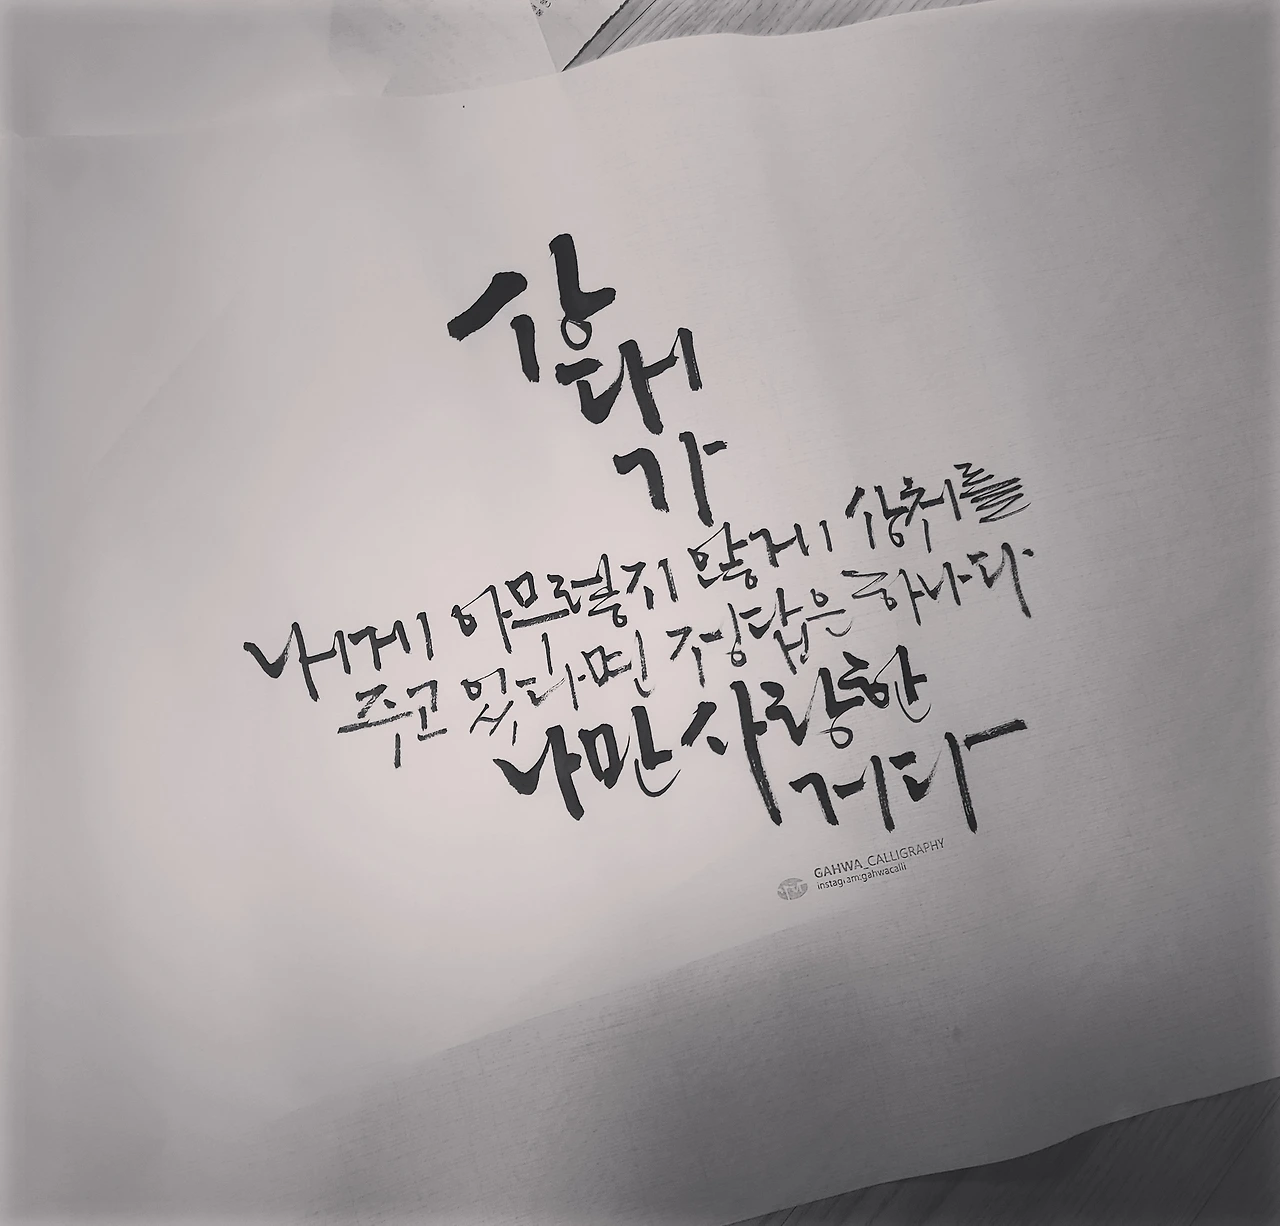 상
대
가
내게 아무렇지 않게 상처를
주고 있다면 정답은 하나다
나만 사랑한
거다
GAHWA_CALLIGRAPHY
instagram:gahwacalli